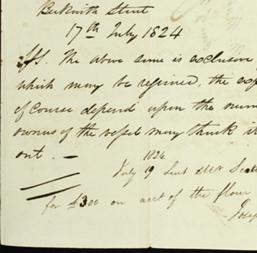 Beckwith Street
17th July 1824
Mss. The above sume is exclusion
which may be refined, the exp
of Course depend upon the num
owners of the vessel may think it
out. —
1824
July 19 Sent Mr Scal
for £300 on acct of the flour
Josep